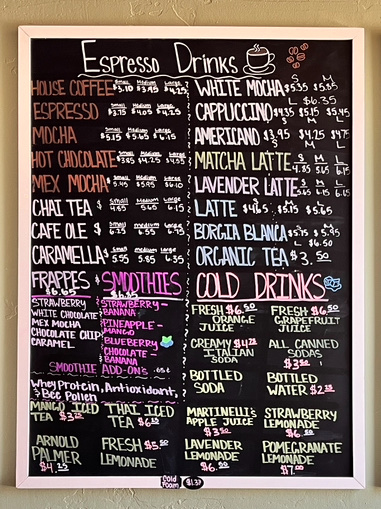 Espresso Drinks
HOUSE COFFEE Small $3.10 Medium $3.95 Large $4.25
ESPRESSO Small $3.75 Medium $4.05 Large $4.25
MOCHA Small $5.15 Medium $5.65 Large $6.15
HOT CHOCOLATE Small $3.85 Medium $4.25 Large
MEX MOCHA Small $5.45 Medium $5.95 Large $6.10
CHAI TEA $ Small 4.85 Medium 5.65 Large 6.15
CAFE OLE $ Small medium 6.55 large 6.75
CARAMELLA $ Small 5.55 medium 5.85 large 6.35
WHITE MOCHA S $5.35 M $5.85
L $6.35
CAPPUCCINO $4.35 $5.15 $5.45
S M L
AMERICANO $3.95 $4.25 $4.75
MATCHA LATTE S 4.85 M 5.65 L 6.15
LAVENDER LATTE S M L
LATTE $4.65 $5.15 $5.65
BORGIA BLANCA S $5.75 M $5.95
L $6.50
ORGANIC TEA $3.50
FRAPPES $
$6.65
STRAWBERRY
WHITE CHOCOLATE
MEX MOCHA
CHOCOLATE CHIP
CARAMEL
SMOOTHIES
$6.85
STRAWBERRY-
BANANA
PINEAPPLE-
MANGO
BLUEBERRY
CHOCOLATE-
BANANA
SMOOTHIE ADD-ON'S .65¢
Whey Protein, Antioxidant,
& Bee Pollen
MANGO ICED
TEA $3.75
THAI ICED
TEA $6
ARNOLD
PALMER
$4.
FRESH $5.50
LEMONADE
COLD DRINKS
FRESH $6.50
ORANGE
JUICE
FRESH $6.
GRAPEFRUIT
JUICE
CREAMY $4.
ITALIAN
SODA
ALL CANNED
SODAS
$3.
BOTTLED
SODA
BOTTLED
WATER $2.
MARTINELLI'S
APPLE JUICE
$3.50
STRAWBERRY
LEMONADE
$6.
LAVENDER
LEMONADE
$6.
POMEGRANATE
LEMONADE
$7.00
Cold
Foam $1.